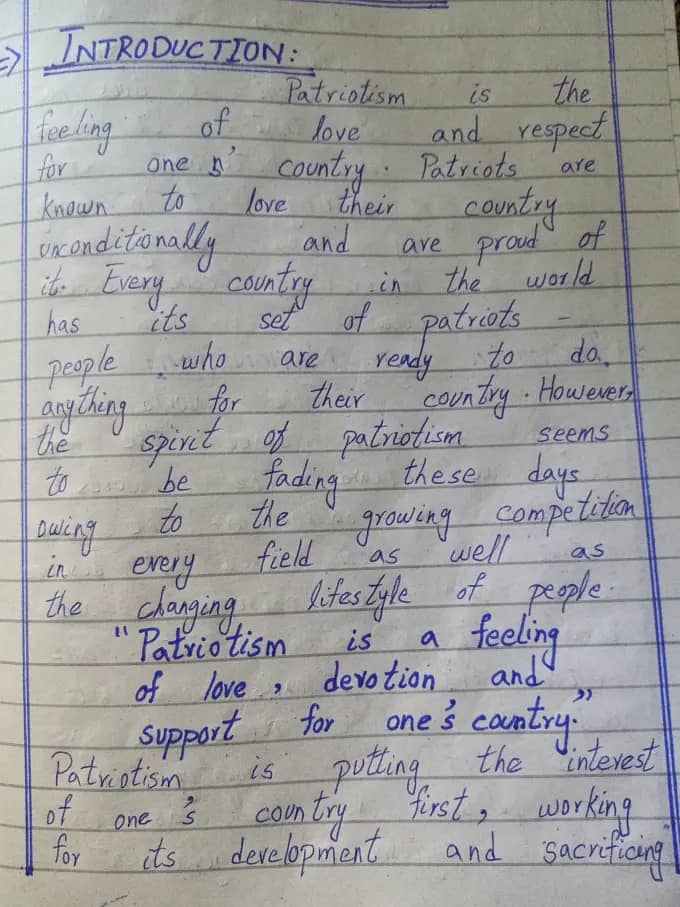 => INTRODUCTION:
Patriotism is the
feeling of love and respect
for one s' country. Patriots are
known to love their country
unconditionally and are proud of
it. Every country in the world
has its set of patriots -
people who are ready to do
anything for their country. However,
the spirit of patriotism seems
to be fading these days
owing to the growing competition
in every field as well as
the changing lifestyle of people.
"Patriotism is a feeling
of love, devotion and
support for one's country."
Patriotism is putting the interest
of one's country first, working
for its development and sacrificing